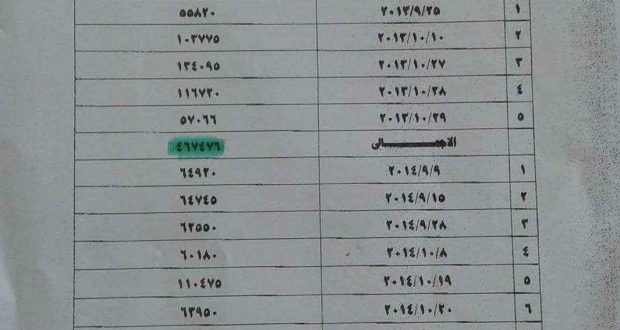 ١ ٢٠١٣/٩/٢٥ ٥٥٨٢٠
٢ ٢٠١٣/١٠/١٠ ١٠٣٧٧٥
٣ ٢٠١٣/١٠/٢٧ ١٣٤٠٩٥
٤ ٢٠١٣/١٠/٢٨ ١١٦٧٢٠
٥ ٢٠١٣/١٠/٢٩ ٥٧٠٦٦
الاجمـــــــــالى ٤٦٧٤٧٦
١ ٢٠١٤/٩/٩ ٦٤٩٢٠
٢ ٢٠١٤/٩/١٥ ٦٤٧٤٥
٣ ٢٠١٤/٩/٢٨ ٦٢٥٥٠
٤ ٢٠١٤/١٠/٨ ٦٠١٨٠
٥ ٢٠١٤/١٠/١٩ ١١٠٤٧٥
٦ ٢٠١٤/١٠/٢٠ ٦٢٩٥٠